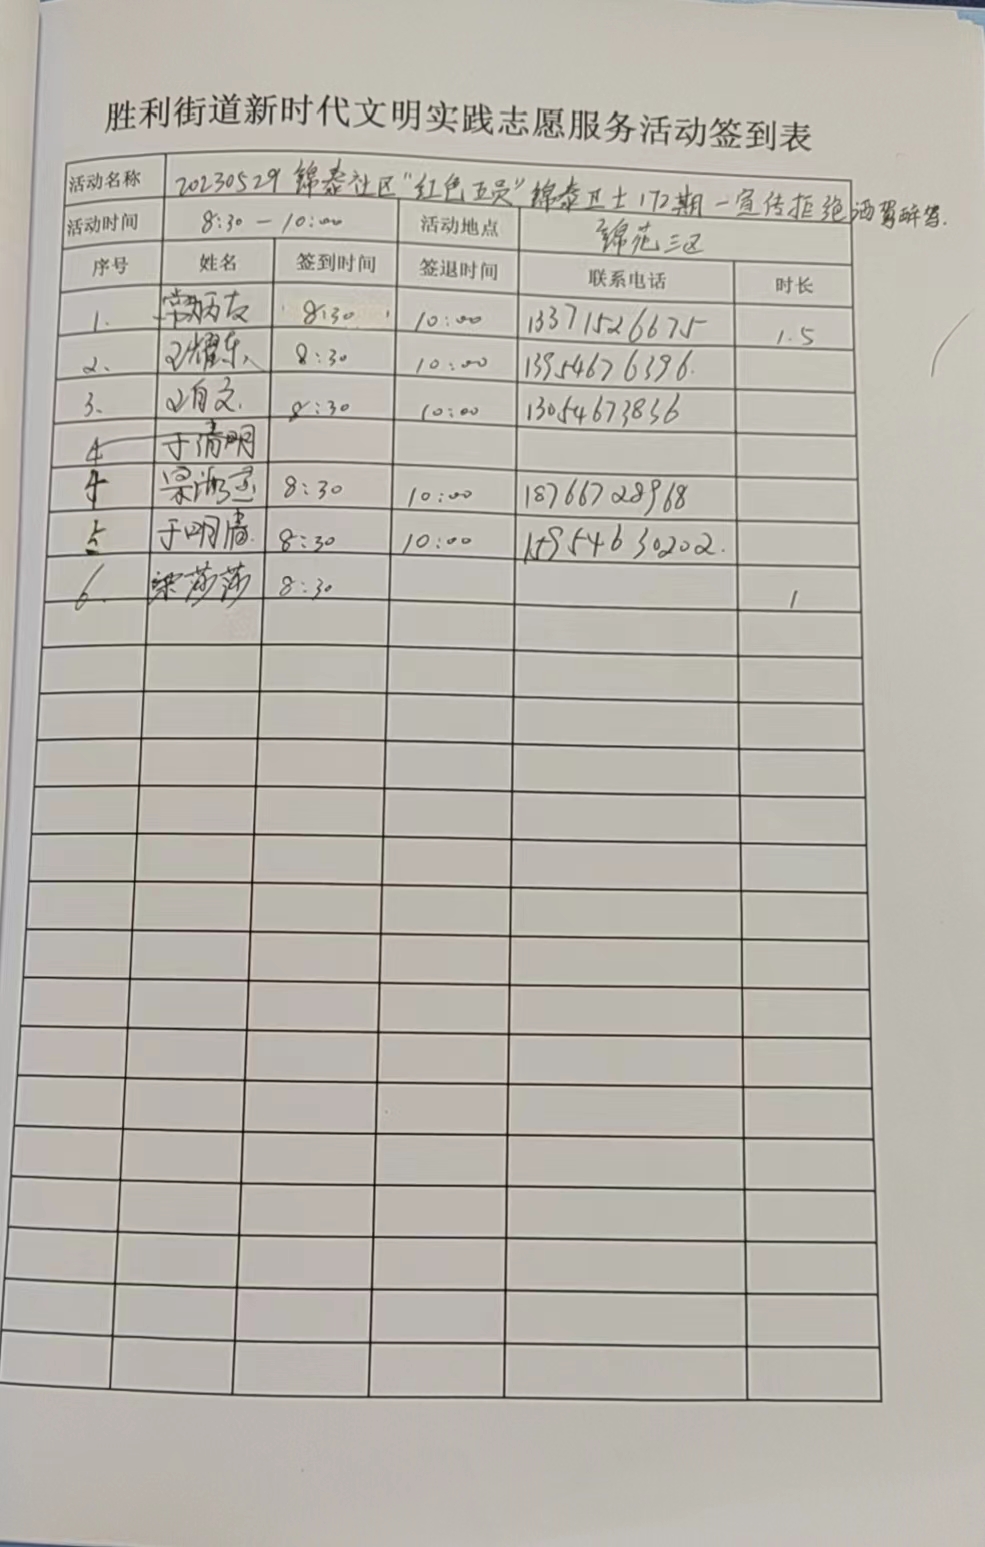 胜利街道新时代文明实践志愿服务活动签到表
活动名称 20230529 锦泰社区"红色五员"锦泰卫士172期—宣传拒绝酒驾醉驾.
活动时间 8:30 — 10:00 活动地点 锦花三区
序号 姓名 签到时间 签退时间 联系电话 时长
1. 常炳友 8:30 10:00 13371526675 1.5
2. 王耀东 8:30 10:00 13954676396.
3. 王自文. 8:30 10:00 13054673836
4 于清明
4 梁 8:30 10:00 18766728968
5 于明清. 8:30 10:00 15954630202.
6. 梁莎莎 8:30 1